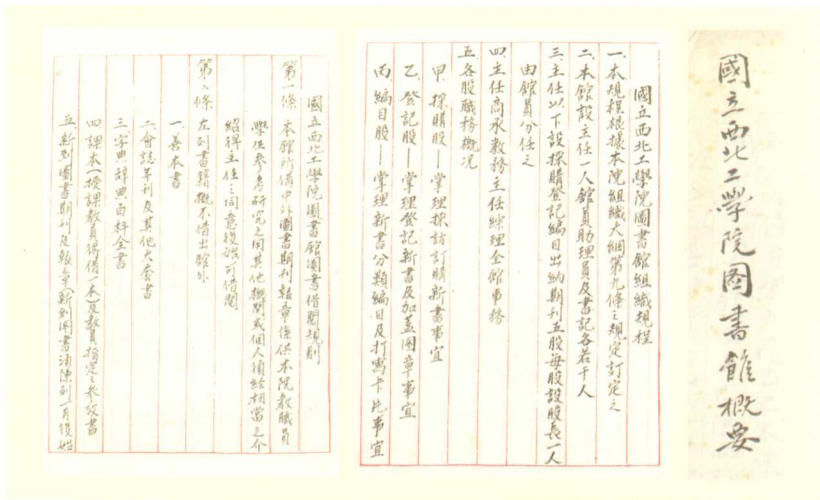 國立西北工學院图書館概要
國立西北工學院圖書館組織規程
一、本規程根據本院組織大綱第九條之規定訂定之
二、本館設主任一人館員助理員及書記各若干人
三、主任以下設採購登記編目出納期刊五股每股設股長一人
由館員分任之
四、主任商承教務主任綜理全館事務
五、各股職務概况
甲、採購股——掌理採訪訂購新書事宜
乙、登記股——掌理登記新書及加蓋圖章事宜
丙、編目股——掌理新書分類編目及打寫卡片事宜
國立西北工學院圖書館圖書借閱規則
第一條 本館所備中外圖書期刊報章僅供本院教職員
學生參考研究之用其他機關或個人須經相當之介
紹得主任之同意後始可借閱
第二條 左列書籍概不借出館外
一、善本書
二、會誌年刊及其他大套書
三、字典辭典百科全書
四、課本（授課教員得借一本）及教員指定之參攷書
五、新到圖書期刊及報章（新到圖書須陳列一月後始